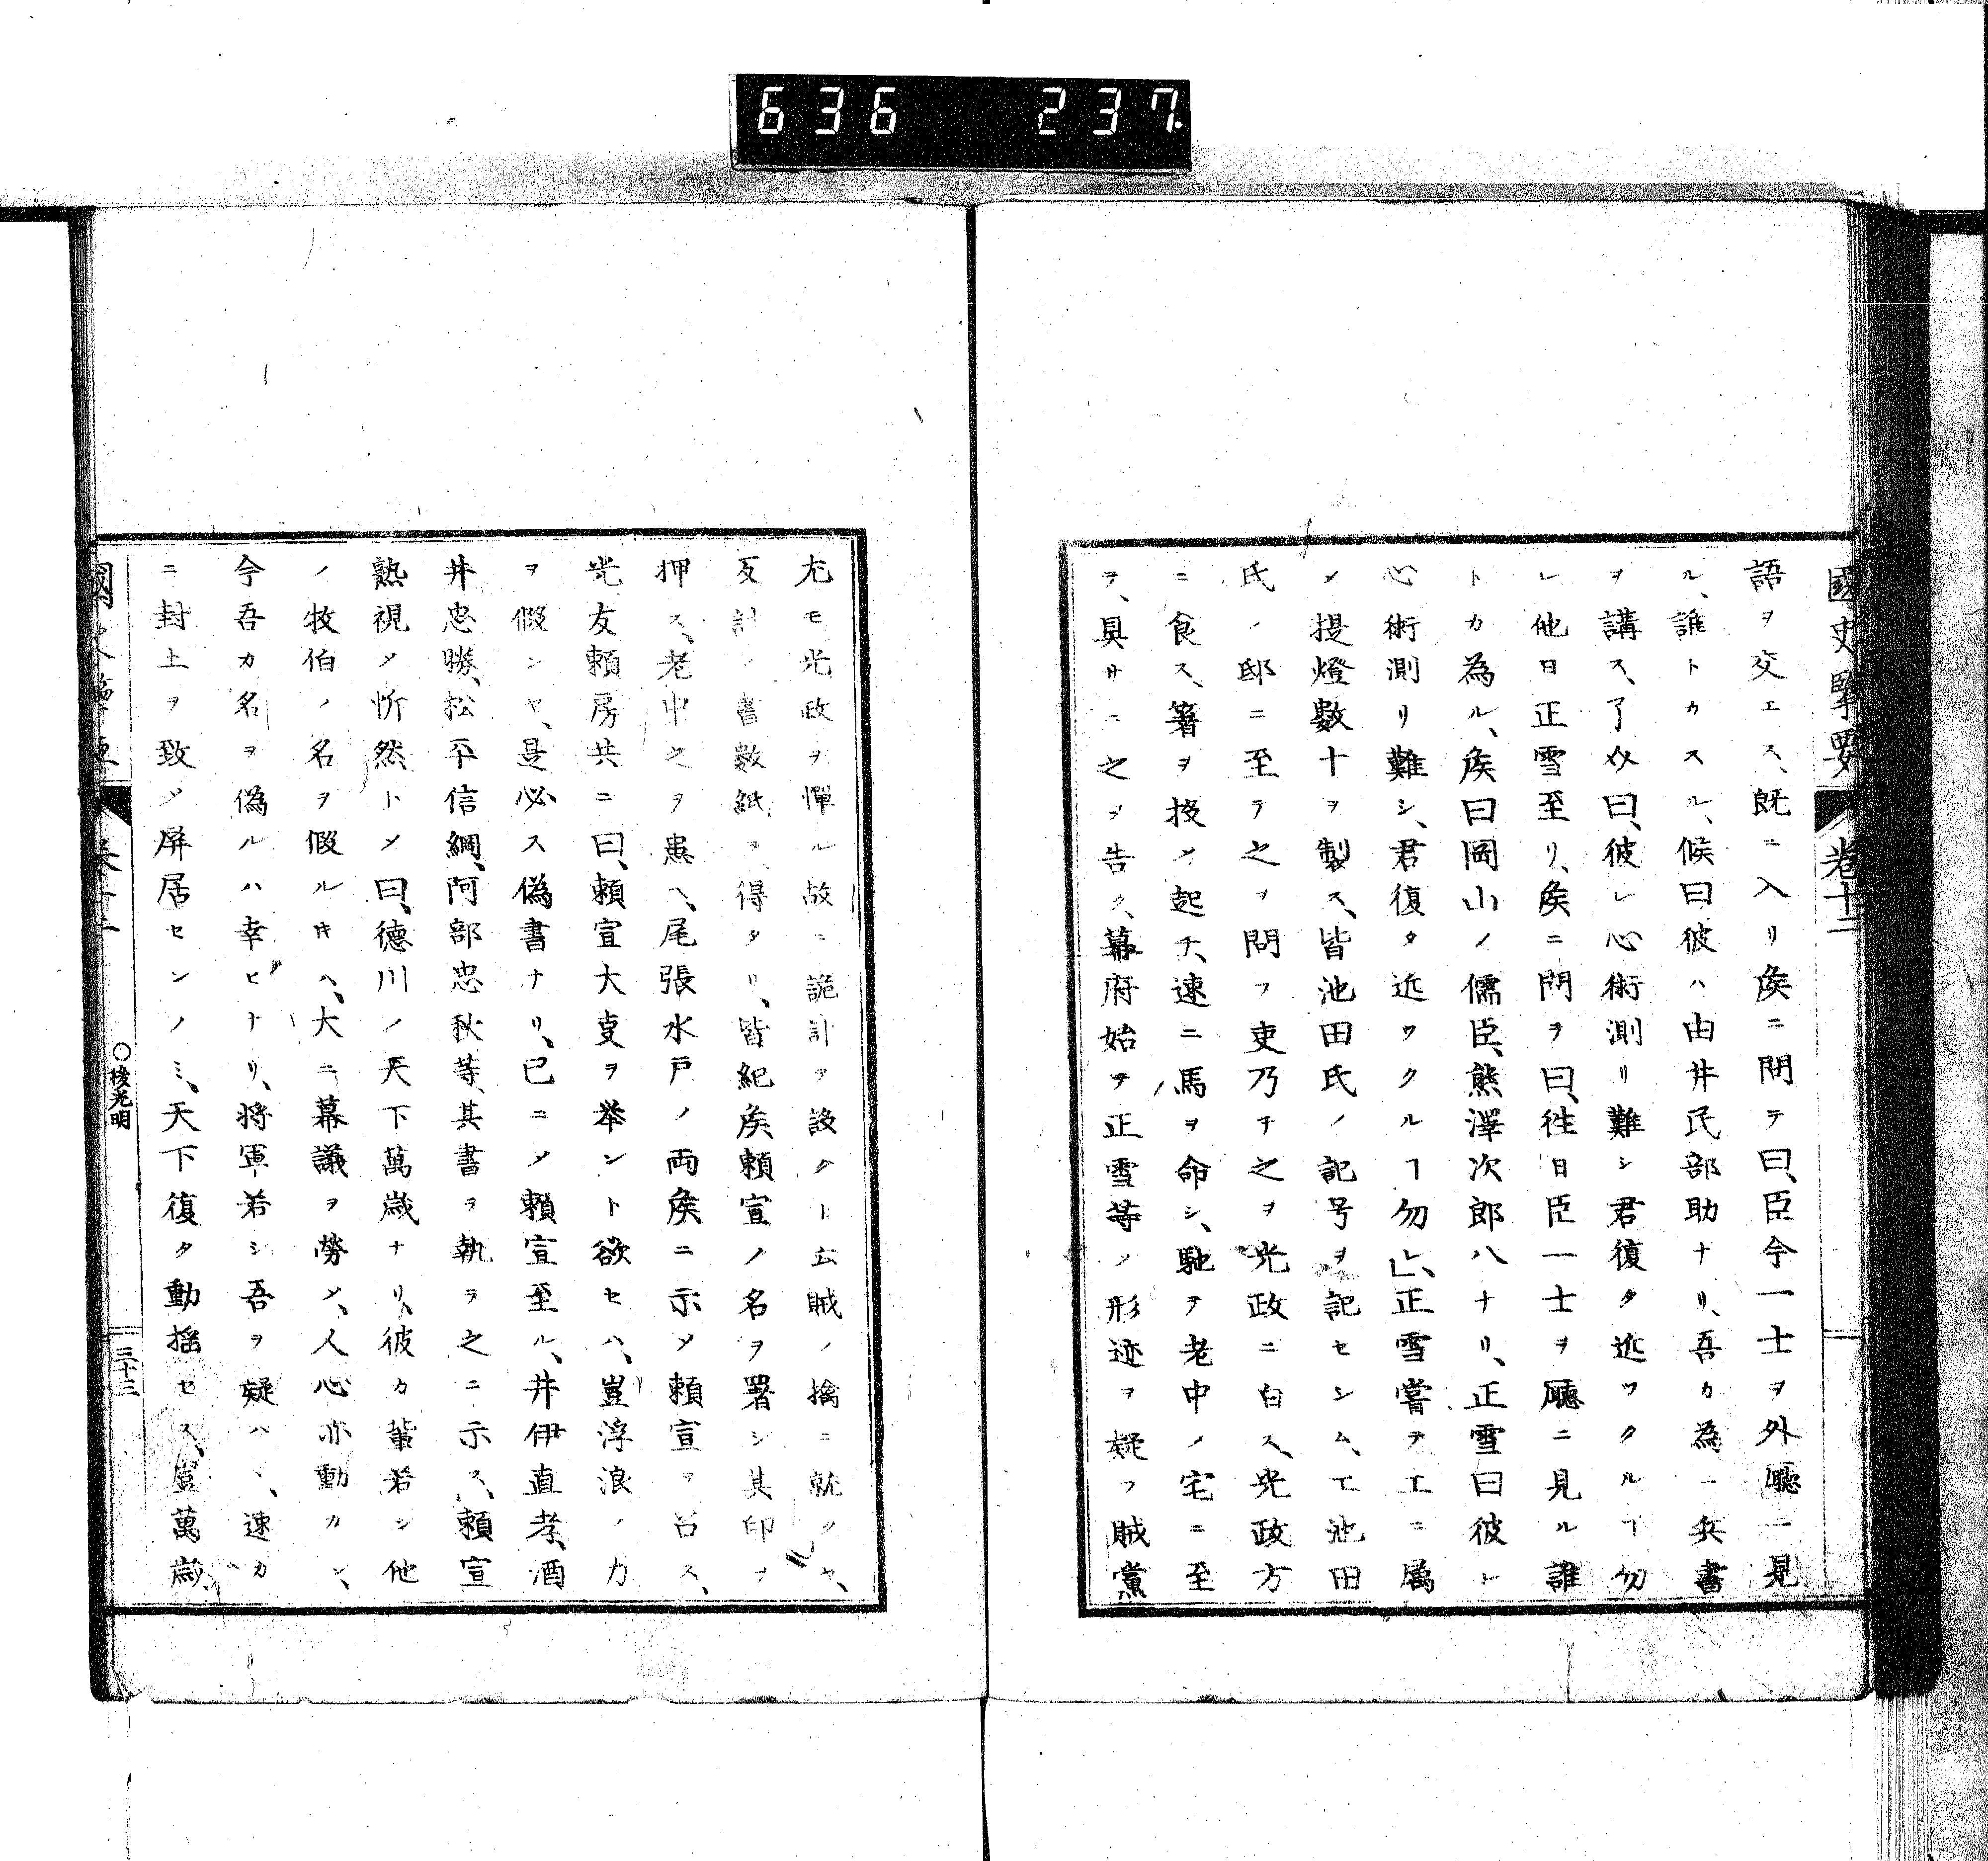 636 237.
國史擥要 卷十二
語ヲ交エス、既ニ入リ矦ニ問テ曰、臣今一士ヲ外廳ニ見
ル、誰トカスル、候曰彼ハ由井民部助ナリ、吾カ為ニ兵書
ヲ講ス、了介曰、彼レ心術測リ難シ君復タ近ツクルヿ勿
レ他日正雪至リ、矦ニ問ヲ曰、徃日臣一士ヲ廳ニ見ル誰
トカ為ル、矦曰岡山ノ儒臣、熊澤次郎八ナリ、正雪曰彼レ
心術測リ難シ、君復タ近ツクルヿ勿レ、正雪嘗テ工ニ属
メ提燈數十ヲ製ス、皆池田氏ノ記号ヲ記セシム、工池田
氏ノ邸ニ至ラ之ヲ問フ吏乃チ之ヲ光政ニ白ス、光政方
ニ食ス、箸ヲ投メ起チ、速ニ馬ヲ命シ、馳テ老中ノ宅ニ至
ラ、具サニ之ヲ告ク、幕府始テ正雪等ノ形迹ヲ疑フ賊黨
尤モ光政ヲ憚ル故ニ詭計ヲ設クト云賊ノ擒ニ就クヤ、
反計ノ書數紙ヲ得タリ、皆紀矦頼宣ノ名ヲ署シ其印ヲ
押ス、老中之ヲ患ヘ、尾張水戸ノ両矦ニ示メ頼宣ヲ召ス、
光友頼房共ニ曰、頼宣大㕝ヲ举ント欲セハ、豈浮浪ノ力
ヲ假ンヤ、是必ス偽書ナリ、已ニメ頼宣至ル、井伊直孝、酒
井忠勝、松平信綱、阿部忠秋等、其書ヲ執ラ之ニ示ス、頼宣
熟視メ忻然トメ曰、德川ノ天下萬歳ナリ、彼カ輩若シ他
ノ牧伯ノ名ヲ假ルキハ、大ニ幕議ヲ勞メ、人心亦動カン、
今吾カ名ヲ偽ルハ幸ヒナリ、将軍若シ吾ヲ疑ハヽ、速カ
ニ封土ヲ致メ屏居センノミ、天下復タ動揺セス、豈萬歳
國史擥要 卷十二 ○後光明 三十三